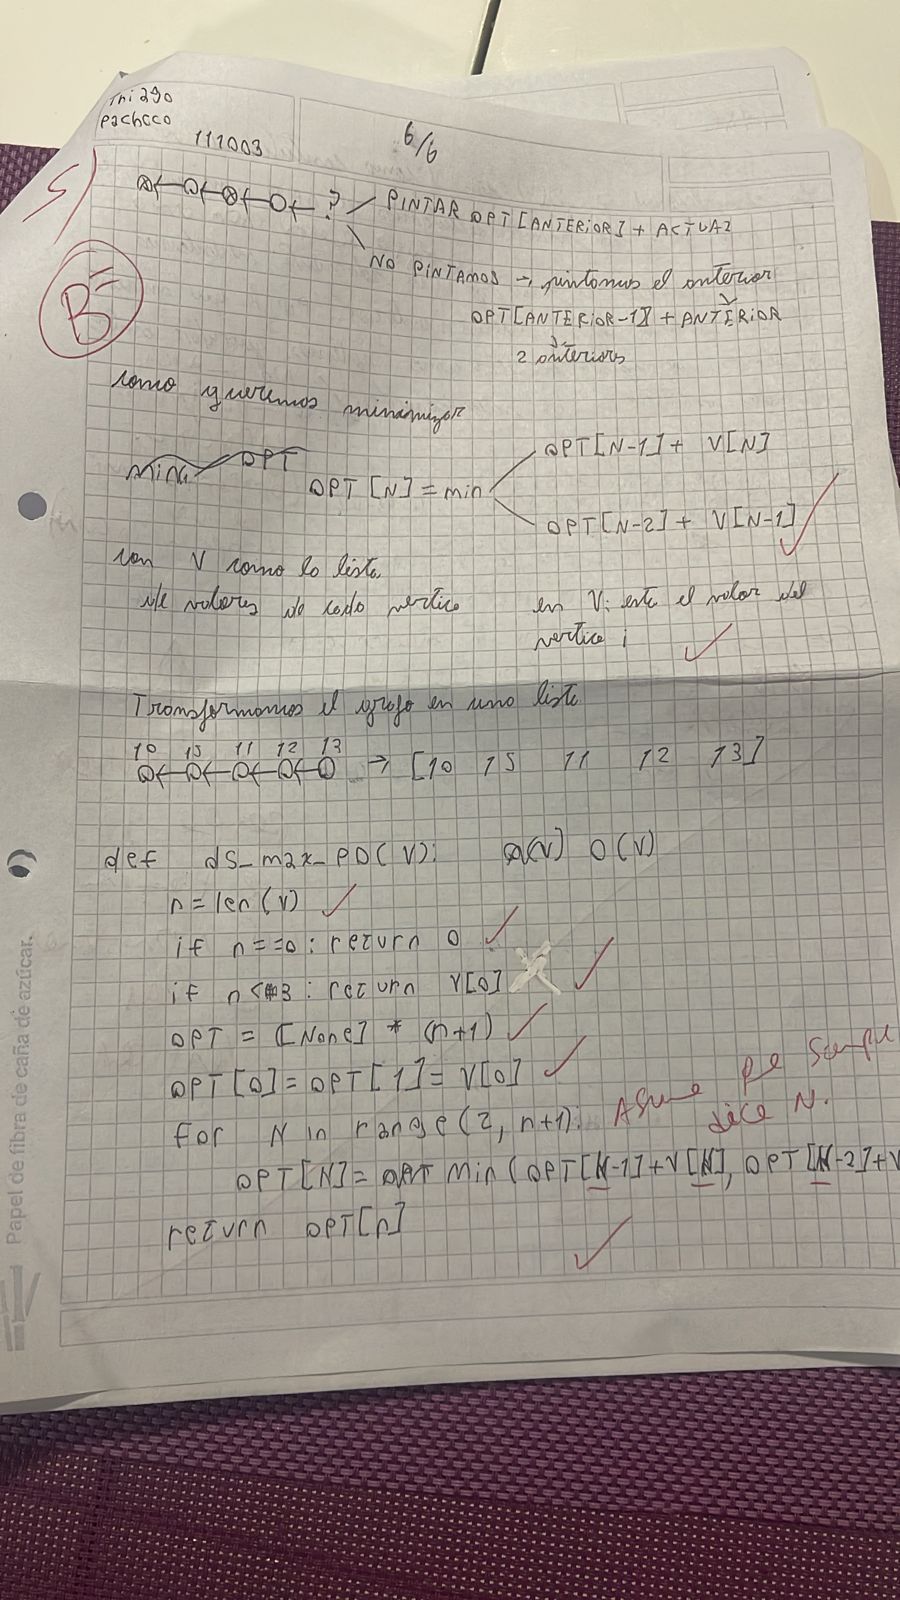 Thiago
Pacheco
111003
6/6
5)
B-
? PINTAR OPT[ANTERIOR] + ACTUAL
NO PINTAMOS → pintamos el anterior
OPT[ANTERIOR-1] + ANTERIOR
2 anteriores
como queremos minimizar
OPT[N] = min
OPT[N-1] + V[N]
OPT[N-2] + V[N-1]
con V como la lista
de valores de cada vertice
en Vi esta el valor del
vertice i
Transformamos el grafo en una lista
10 15 11 12 13
→ [10 15 11 12 13]
def ds_max_PD(V): O(V)
n = len(V)
if n==0: return 0
if n<3: return V[0]
OPT = [None] * (n+1)
OPT[0]=OPT[1]= V[0]
for N in range(2, n+1):
Asume que siempre
dice N.
OPT[N]= min(OPT[N-1]+V[N], OPT[N-2]+V
return OPT[n]
Papel de fibra de caña de azúcar.